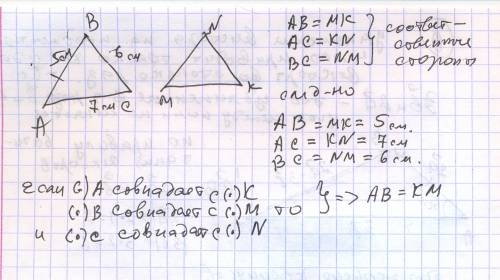 B
5см
6 см
7 см
A
C
N
M
K
AB = MK
AC = KN
BC = NM
соответ-
ственные
стороны
след-но
AB = MK = 5 см.
AC = KN = 7 см
BC = NM = 6 см.
если (·) A совпадает с (·) K
(·) B совпадает с (·) M то } => AB = KM
и (·) C совпадает с (·) N